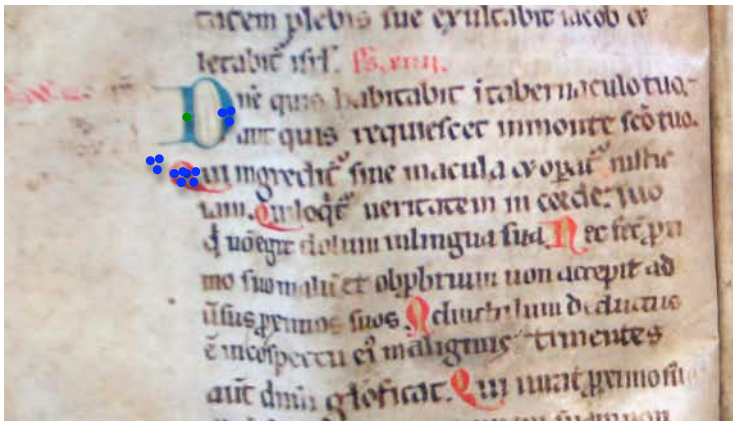 tatem plebis sue exultabit iacob et
letabit isrl. Ps. xiiii.
Dne quis habitabit itabernaculo tuo.
aut quis requiescet inmonte scõ tuo.
Qui ingredit sine macula et opat iustic
iam. Qui loqt ueritatem in corde suo
q̇ nõ egit dolum inlingua sua. Nec fec pxi
mo suo malũ et obprbrium non accepit ad
ũsus pximos suos. Ad nichilum deductus
ẽ incõspectu ei malignus timentes
aut dnm glorificat. Qui iurat pximo su